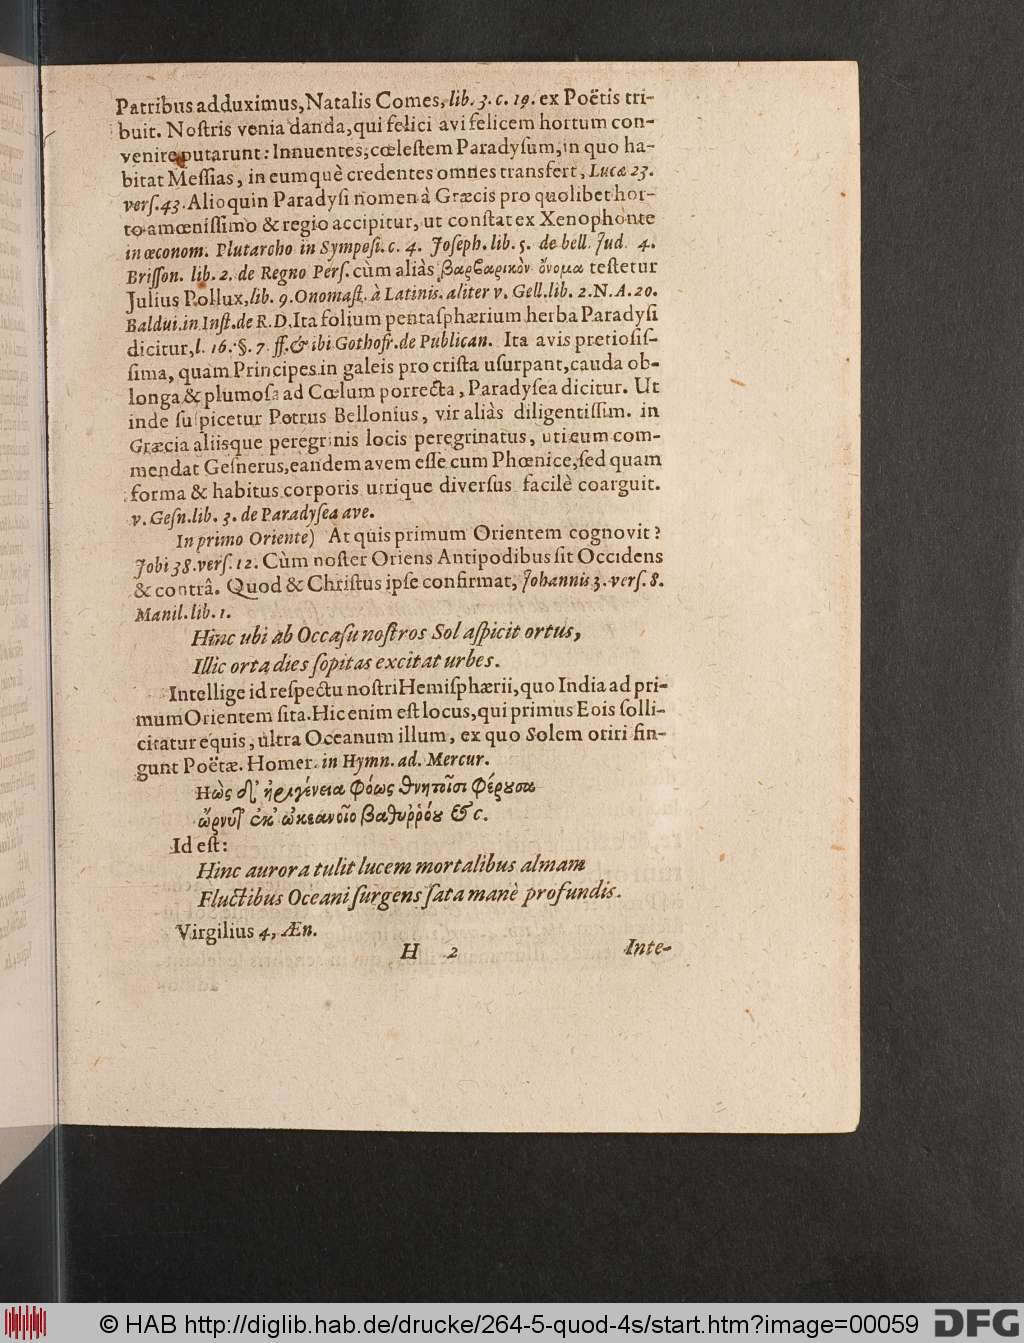 Patribus adduximus, Natalis Comes, lib. 3. c. 19. ex Poëtis tri-
buit. Noſtris venia danda, qui felici avi felicem hortum con-
venire putarunt: Innuentes, cœleſtem Paradyſum, in quo ha-
bitat Meſſias, in eumquè credentes omnes transfert, Lucæ 23.
verſ. 43. Alioquin Paradyſi nomen à Græcis pro quolibet hor-
to amœniſſimo & regio accipitur, ut conſtat ex Xenophonte
in œconom. Plutarcho in Sympoſ. c. 4. Joſeph. lib. 5. de bell. Jud. 4.
Briſſon. lib. 2. de Regno Perſ. cùm aliàs βαρβαρικὸν ὄνομα teſtetur
Julius Pollux, lib. 9. Onomaſt. à Latinis. aliter v. Gell. lib. 2. N. A. 20.
Baldui. in Inſt. de R. D. Ita folium pentaſphærium herba Paradyſi
dicitur, l. 16. §. 7. ff. & ibi Gothofr. de Publican. Ita avis pretioſiſ-
ſima, quam Principes in galeis pro criſta uſurpant, cauda ob-
longa & plumoſa ad Cœlum porrecta, Paradyſea dicitur. Ut
inde ſuſpicetur Petrus Bellonius, vir aliàs diligentiſſim. in
Græcia aliisque peregrinis locis peregrinatus, uti eum com-
mendat Geſnerus, eandem avem eſſe cum Phœnice, ſed quam
forma & habitus corporis utrique diverſus facilè coarguit.
v. Geſn. lib. 3. de Paradyſea ave.
In primo Oriente) At quis primum Orientem cognovit?
Jobi 38. verſ. 12. Cùm noſter Oriens Antipodibus ſit Occidens
& contrâ. Quod & Chriſtus ipſe confirmat, Johannis 3. verſ. 8.
Manil. lib. 1.
Hinc ubi ab Occaſu noſtros Sol aſpicit ortus,
Illic orta dies ſopitas excitat urbes.
Intellige id reſpectu noſtri Hemiſphærii, quo India ad pri-
mum Orientem ſita. Hic enim eſt locus, qui primus Eois ſolli-
citatur equis, ultra Oceanum illum, ex quo Solem oriri fin-
gunt Poëtæ. Homer. in Hymn. ad. Mercur.
Ηὼς δ' ἠριγένεια φόως θνητοῖσι φέρουσα
ὤρνυτ' ἐκ' ὠκεανοῖο βαθυῤῥόου &c.
Id eſt:
Hinc aurora tulit lucem mortalibus almam
Fluctibus Oceani ſurgens ſata manè profundis.
Virgilius 4, Æn.
H 2 Inte-
© HAB http://diglib.hab.de/drucke/264-5-quod-4s/start.htm?image=00059
DFG